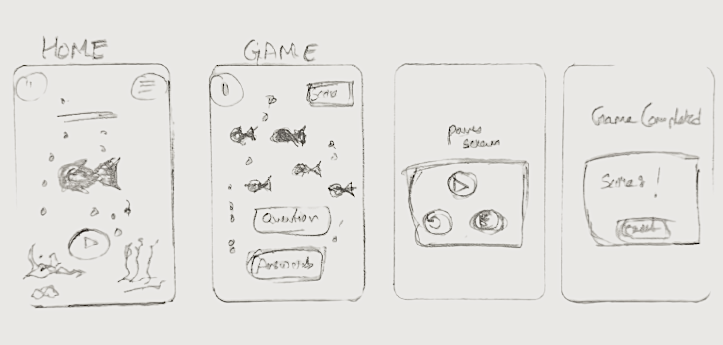 HOME
GAME
Score
Question
Pause
Screen
Game Completed
Score !